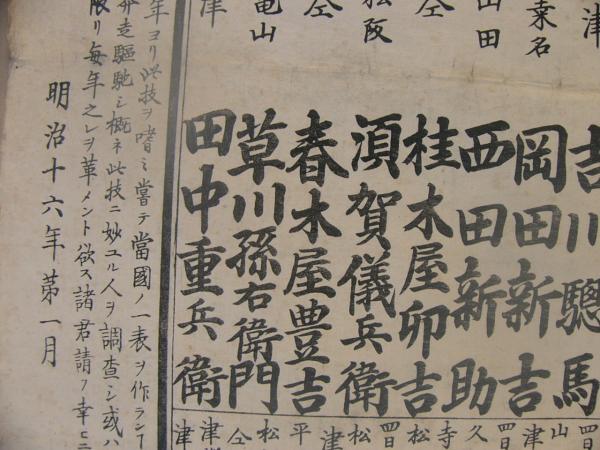 津
桑名
山田
仝
松阪
仝
亀山
津
吉川驄馬
岡田新吉
西田新助
桂木屋卯吉
須賀儀兵衛
春木屋豊吉
草川孫右衛門
田中重兵衛
四日
山
四日
久
寺
松
四日
松
津
平
松
仝
津
津
年ヨリ此技ヲ嗜ミ嘗テ當國ノ一表ヲ作ラン
奔走驅馳シ概ネ此技ニ妙ユル人ヲ調査シ或ハ
限リ毎年之レヲ革メント欲ス諸君請フ幸ヒニ
明治十六年第一月